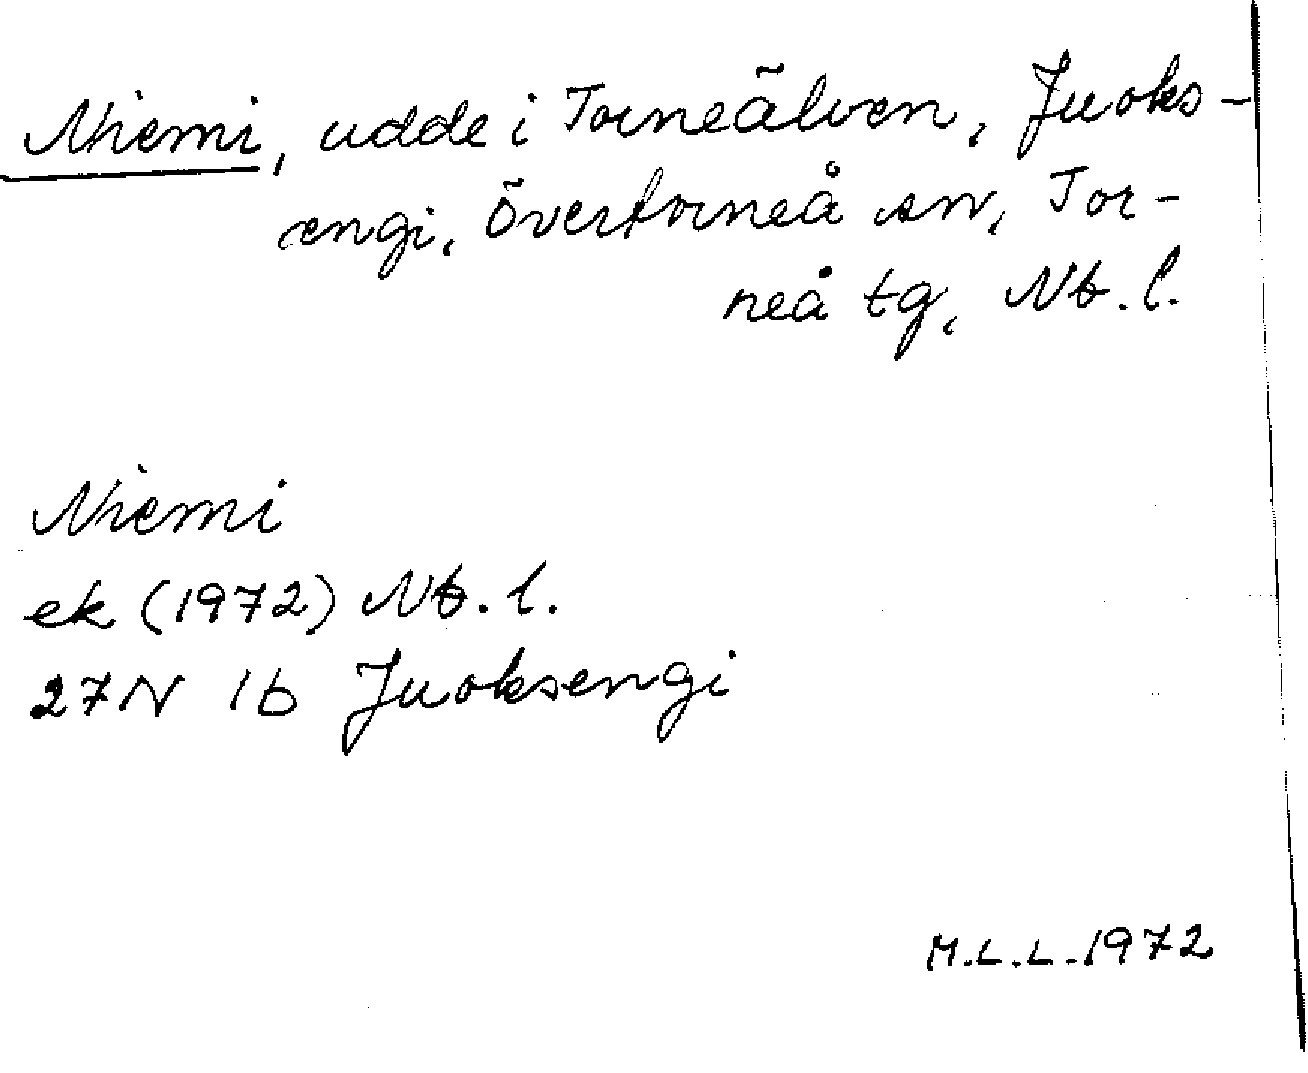 Niemi, udde i Torneälven, Juoks-
engi, Övertorneå sn, Tor-
neå tg, Nb. l.
Niemi
ek (1972) Nb. l.
27N 1b Juoksengi
M.L.L. 1972